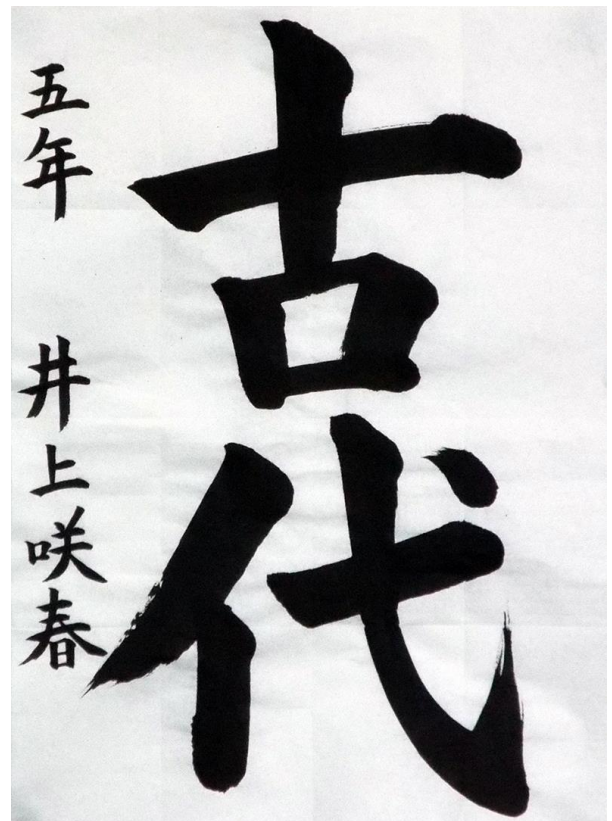 古代
五年 井上咲春